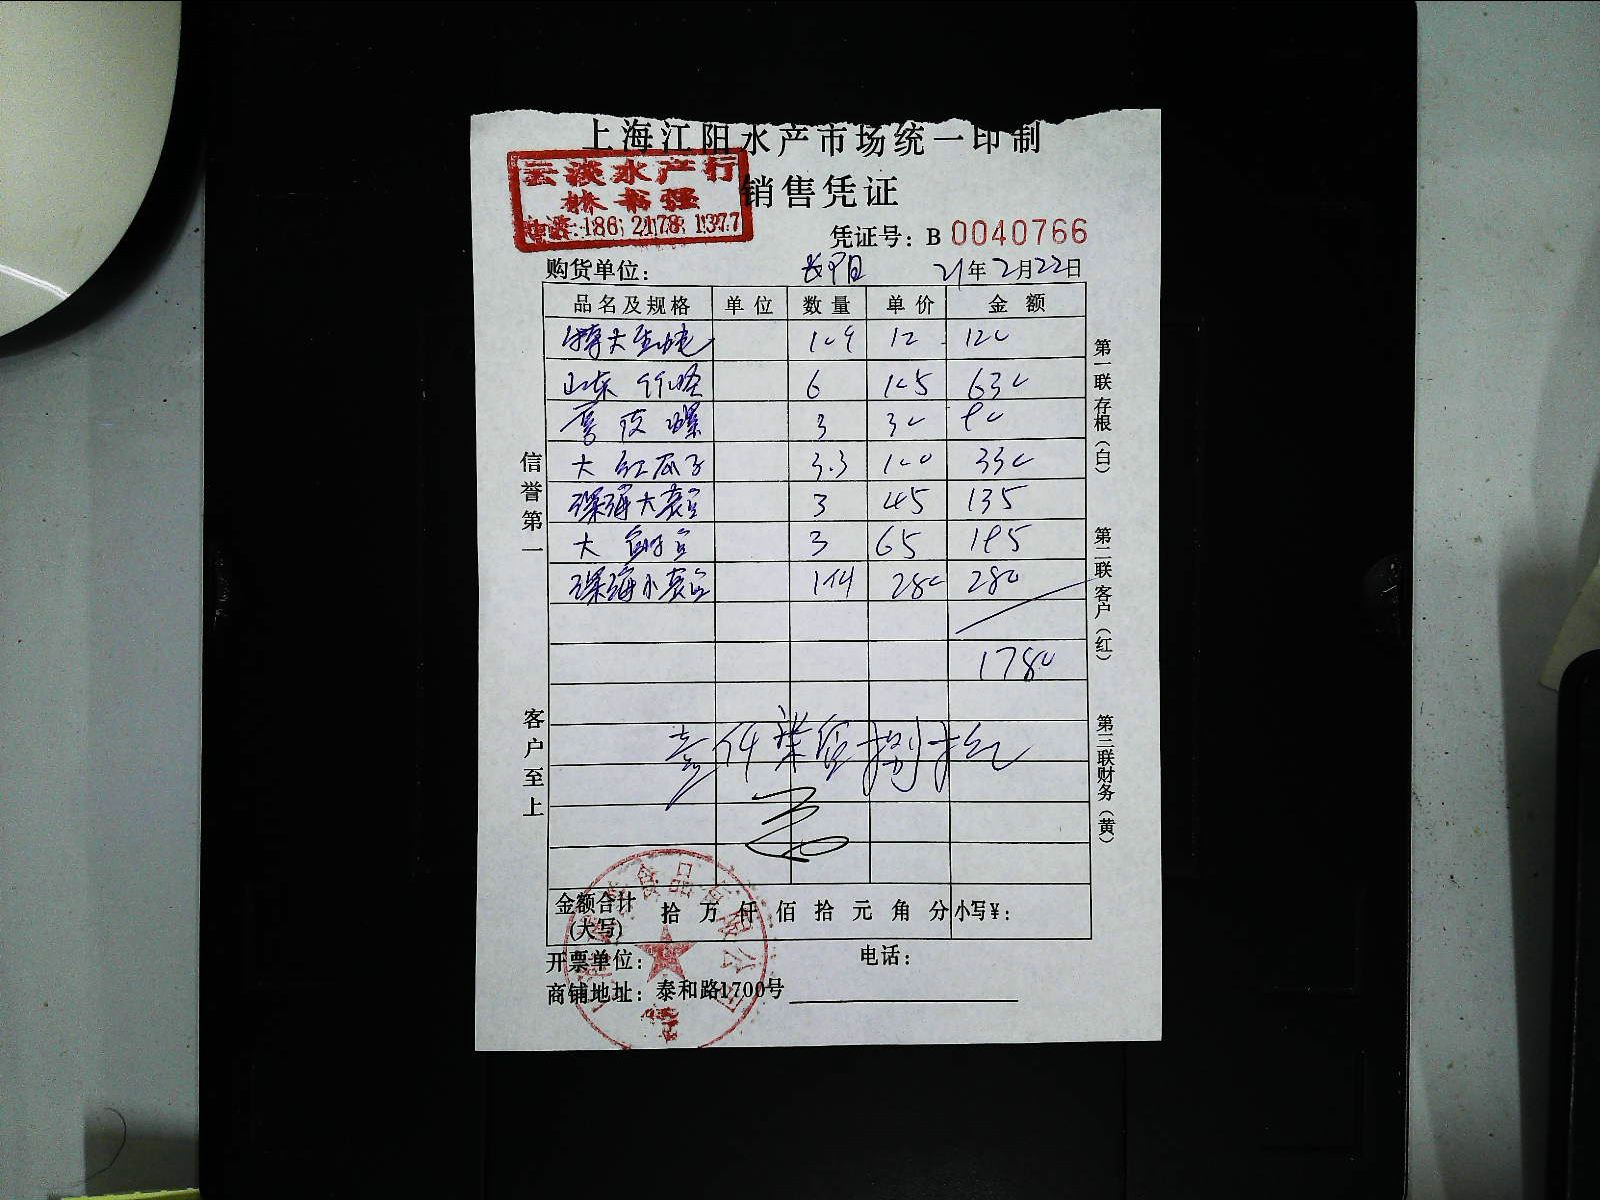 上海江阳水产市场统一印制
云淡水产行
林书强
电话:186 2178 1377
销售凭证
凭证号: B 0040766
购货单位: 21年2月22日
品名及规格 单位 数量 单价 金额
特大生蚝 10个 12 120
山东 竹蛏 6 105 630
3 30 90
大 红瓜子 3.3 100 330
深海大 3 45 135
大 3 65 195
深海小 280 280
1780
壹仟柒佰捌拾元
信誉第一
客户至上
第一联存根(白)
第二联客户(红)
第三联财务(黄)
金额合计(大写) 拾 万 仟 佰 拾 元 角 分 小写¥:
开票单位: 电话:
商铺地址: 泰和路1700号
食品有限公司